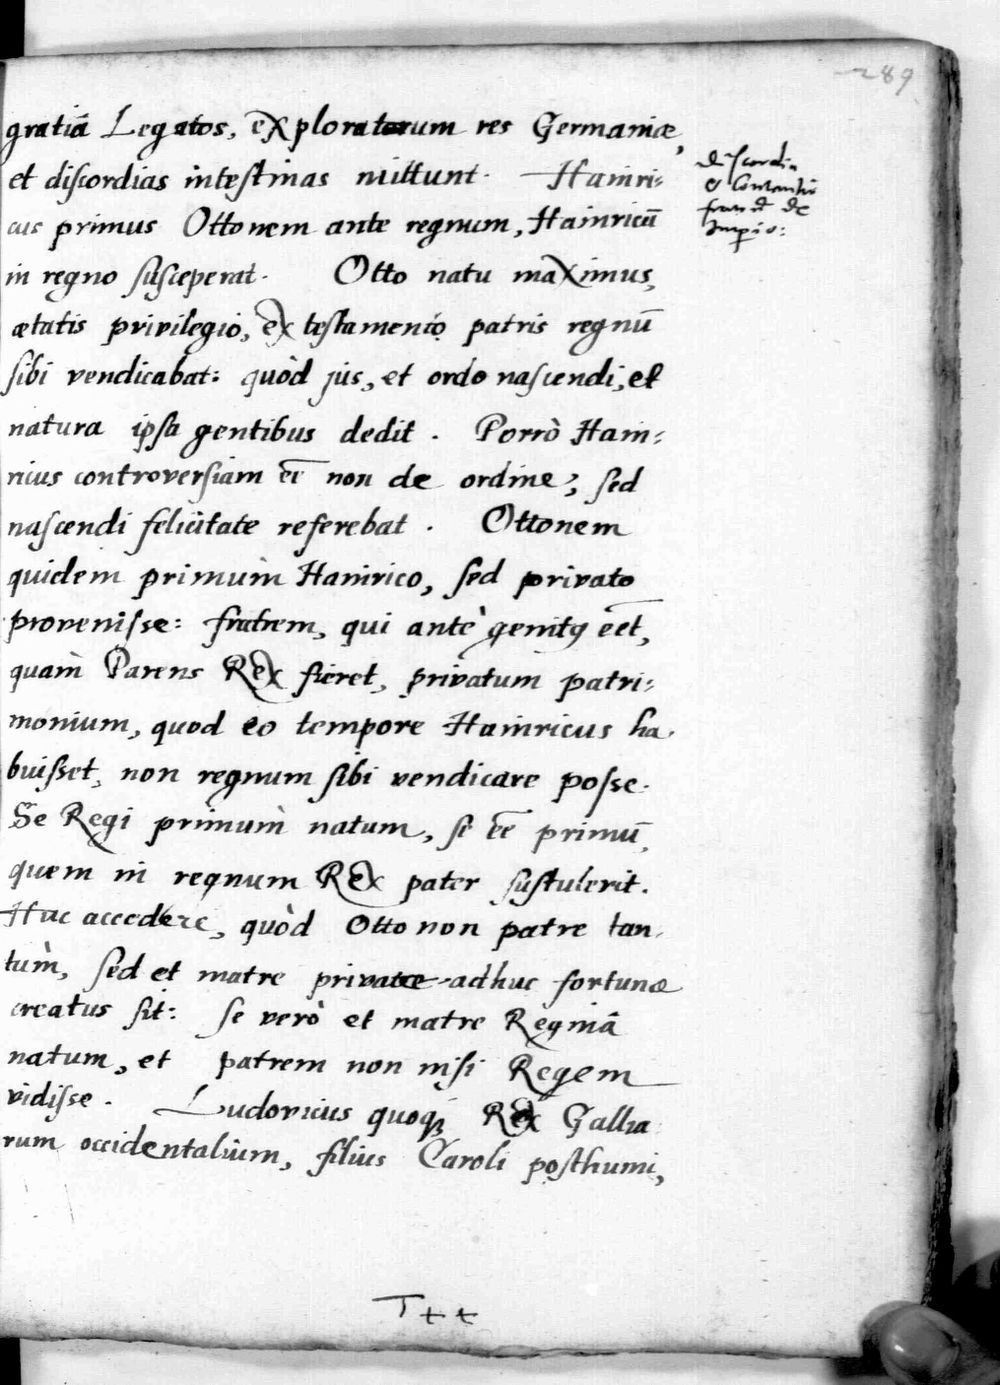 289
gratiā Legatos, exploratorum res Germaniæ,
et discordias intestinas mittunt. Hainri:
cus primus Ottonem ante regnum, Hainricū
in regno susceperat. Otto natu maximus,
ætatis privilegio, ex testamento patris regnū
sibi vendicabat: quòd jus, et ordo nascendi, et
natura ipsa gentibus dedit. Porrò Hain:
ricus controversiam eē non de ordine, sed
nascendi felicitate referebat. Ottonem
quidem primum Hainrico, sed privato
provenisse: fratrem, qui antè genitꝰ eēt,
quàm Parens Rex fieret, privatum patri:
monium, quod eo tempore Hainricus ha.
buisset, non regnum sibi vendicare posse.
Se Regi primum natum, se eē primū,
quem in regnum Rex pater sustulerit.
Huc accedere, quòd Otto non patre tan.
tùm, sed et matre privatæ adhuc fortunæ
creatus sit: se verò et matre Reginâ
natum, et patrem non nisi Regem
vidisse. Ludovicus quoqꝫ Rex Gallia
rum occidentalium, filius Caroli posthumi,
discordia
de
T++